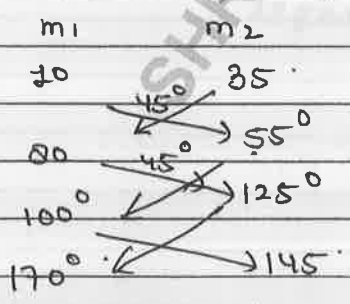 m1 m2
10 35
45°
55°
80 45°
125°
100°
170° 145